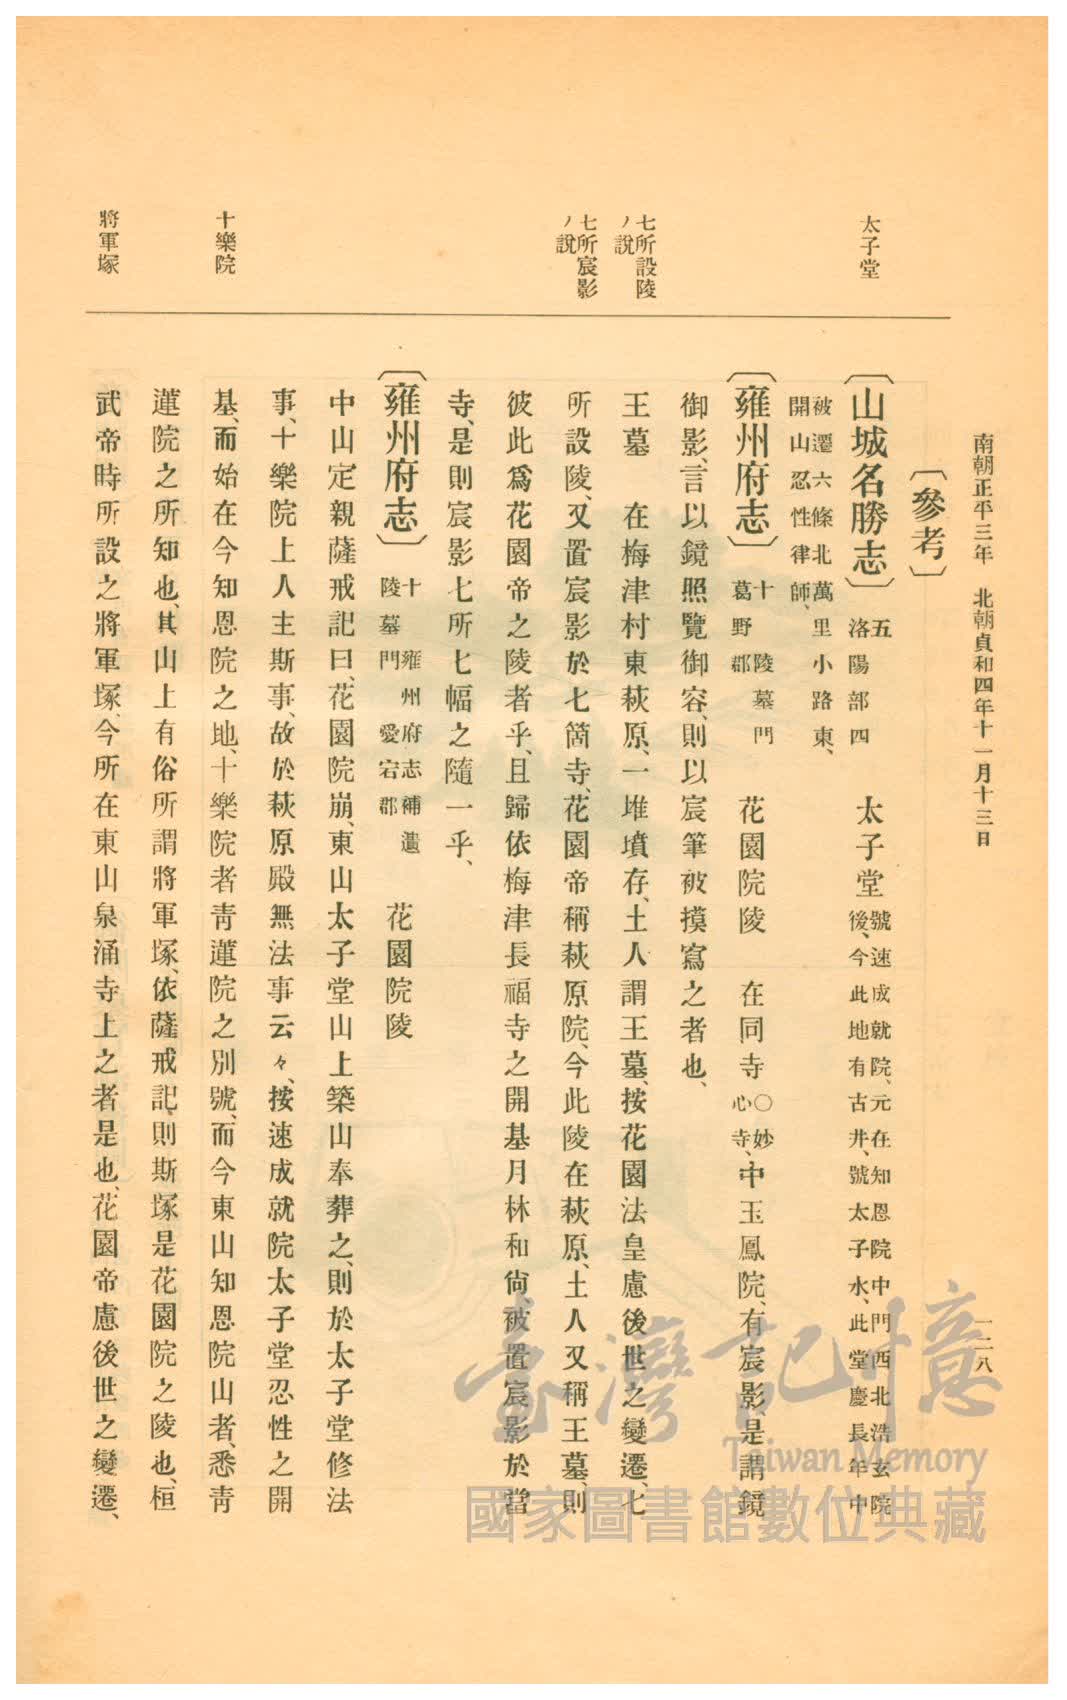 南朝正平三年　北朝貞和四年十一月十三日
一二八
太子堂
七所設陵
ノ說
七所宸影
ノ說
十樂院
將軍塚
〔參考〕
〔山城名勝志〕五
洛陽部四
太子堂
號速成就院、元在知恩院中門西北浩玄院
後、今此地有古井、號太子水、此堂慶長年中
被遷六條北萬里小路東、
開山忍性律師、
〔雍州府志〕十陵墓門
葛野郡
花園院陵　在同寺○妙
心寺、中玉鳳院、有宸影是謂鏡
御影、言以鏡照覽御容、則以宸筆被摸寫之者也、
王墓　在梅津村東萩原、一堆墳存、土人謂王墓、按花園法皇慮後世之變遷、七
所設陵、又置宸影於七箇寺、花園帝稱萩原院、今此陵在萩原、土人又稱王墓、則
彼此爲花園帝之陵者乎、且歸依梅津長福寺之開基月林和尙、被置宸影於當
寺、是則宸影七所七幅之隨一乎、
〔雍州府志〕十雍州府志補遺
陵墓門　愛宕郡
花園院陵
中山定親薩戒記曰、花園院崩、東山太子堂山上築山奉葬之、則於太子堂修法
事、十樂院上人主斯事、故於萩原殿無法事云々、按速成就院太子堂忍性之開
基、而始在今知恩院之地、十樂院者靑蓮院之別號、而今東山知恩院山者、悉靑
蓮院之所知也、其山上有俗所謂將軍塚、依薩戒記、則斯塚是花園院之陵也、桓
武帝時所設之將軍塚、今所在東山泉涌寺上之者是也、花園帝慮後世之變遷、
臺灣記憶
Taiwan Memory
國家圖書館數位典藏